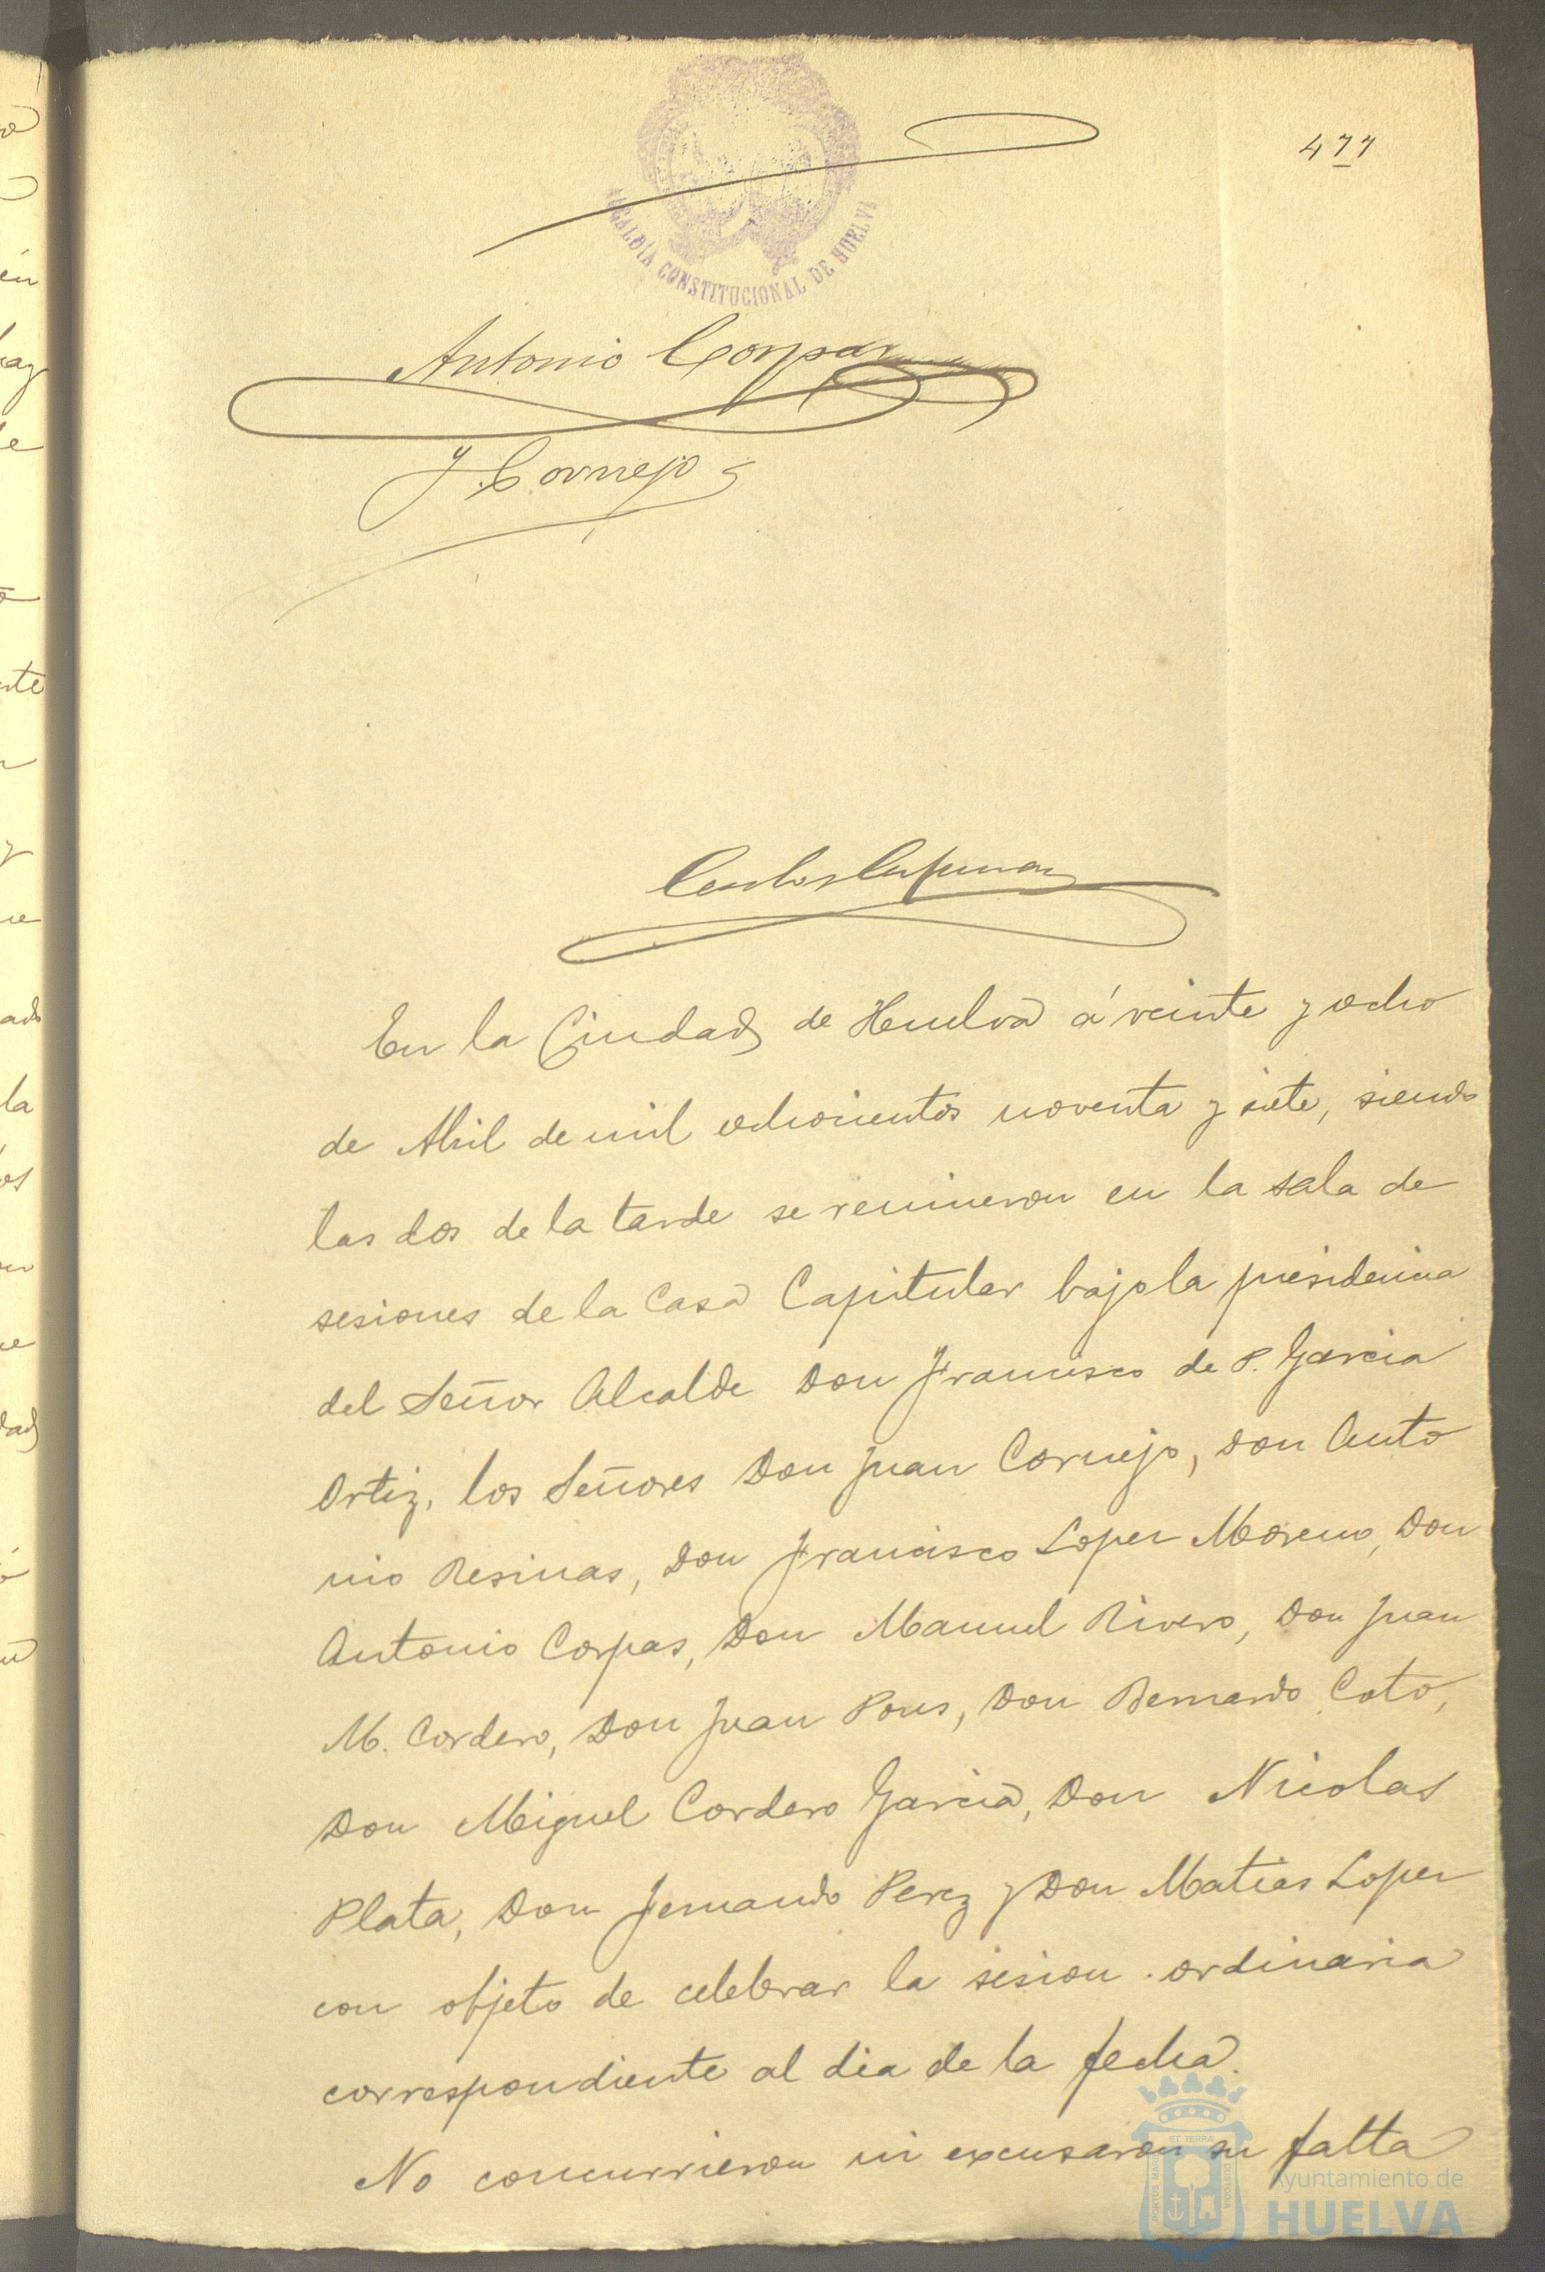 477
ALCALDÍA CONSTITUCIONAL DE HUELVA
Antonio Corpas
y Cornejo
Carlos
En la Ciudad de Huelva á veinte y ocho
de Abril de mil ochocientos noventa y siete, siendo
las dos de la tarde se reunieron en la sala de
sesiones de la Casa Capitular bajo la presidencia
del Señor Alcalde Don Francisco de P. Garcia
Ortiz, los Señores Don Juan Cornejo, Don Anto
nio Resinas, Don Francisco Lopez Moreno, Don
Antonio Corpas, Don Manuel Rivero, Don Juan
M. Cordero, Don Juan Pons, Don Bernardo Coto,
Don Miguel Cordero Garcia, Don Nicolas
Plata, Don Fernando Perez y Don Matias Lopez
con objeto de celebrar la sesion ordinaria
correspondiente al dia de la fecha.
No concurrieron ni excusaron su falta
Ayuntamiento de
HUELVA